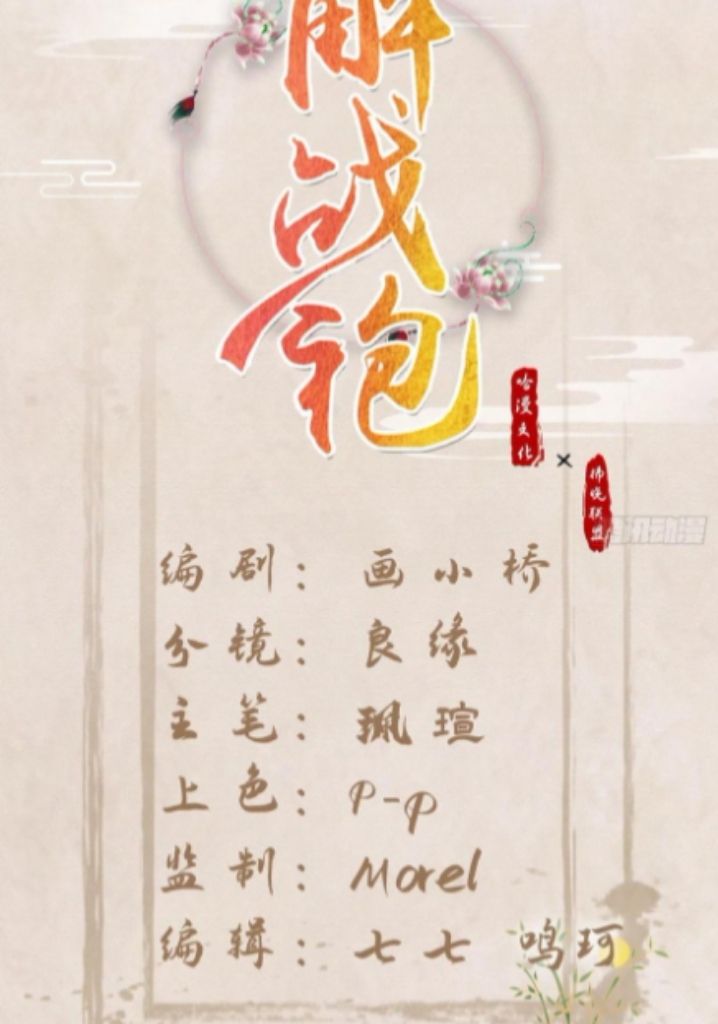 解
战
袍
哈漫文化
×
佛晚联盟
腾讯动漫
编剧：画小桥
分镜：良缘
主笔：珮瑄
上色：P-p
监制：Morel
编辑：七七 鸣珂